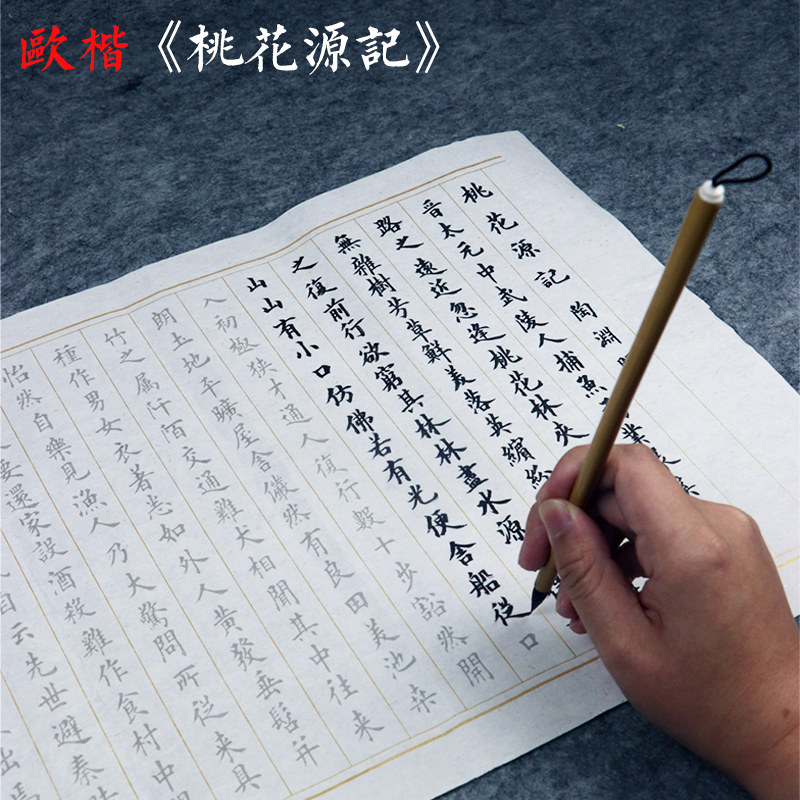 歐楷《桃花源記》
桃花源記陶淵
晉太元中武陵人捕魚業
路之遠近忽逢桃花林夾
無雜樹芳草鮮美落英繽紛
之復前行欲窮其林林盡水源
山山有小口仿佛若有光便舍船從口
入初極狹才通人復行數十步豁然開
朗土地平曠屋舍儼然有良田美池桑
竹之屬阡陌交通雞犬相聞其中往來
種作男女衣著悉如外人黃發垂髫并
怡然自樂見漁人乃大驚問所從來具
要還家設酒殺雞作食村中
自云先世避秦
出焉